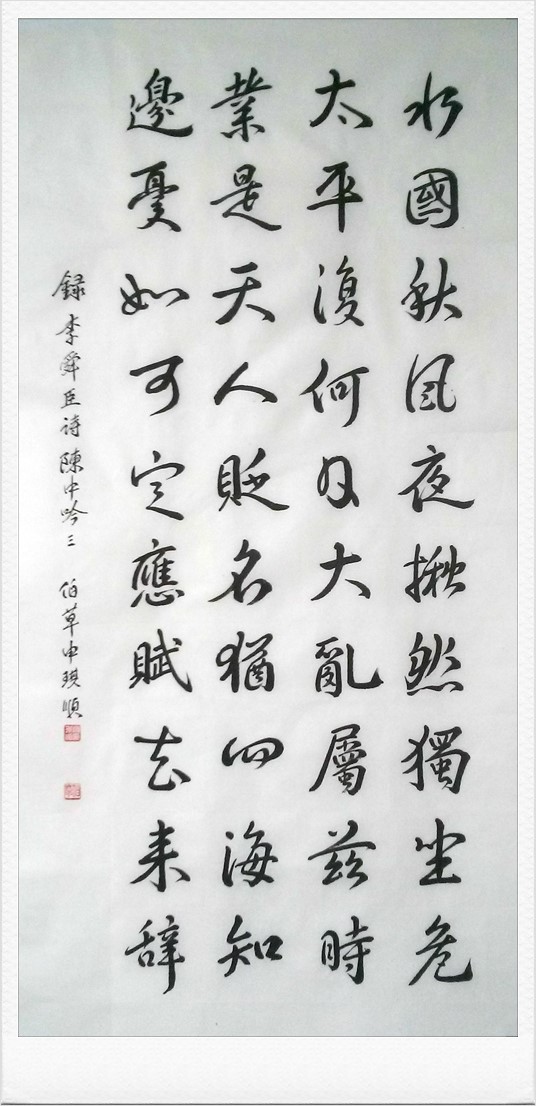 水國秋風夜揪然獨坐危
太平復何日大亂屬茲時
業是天人貶名猶四海知
邊憂如可定應賦去来辞
録李舜臣詩陳中吟三 伯草申琪順